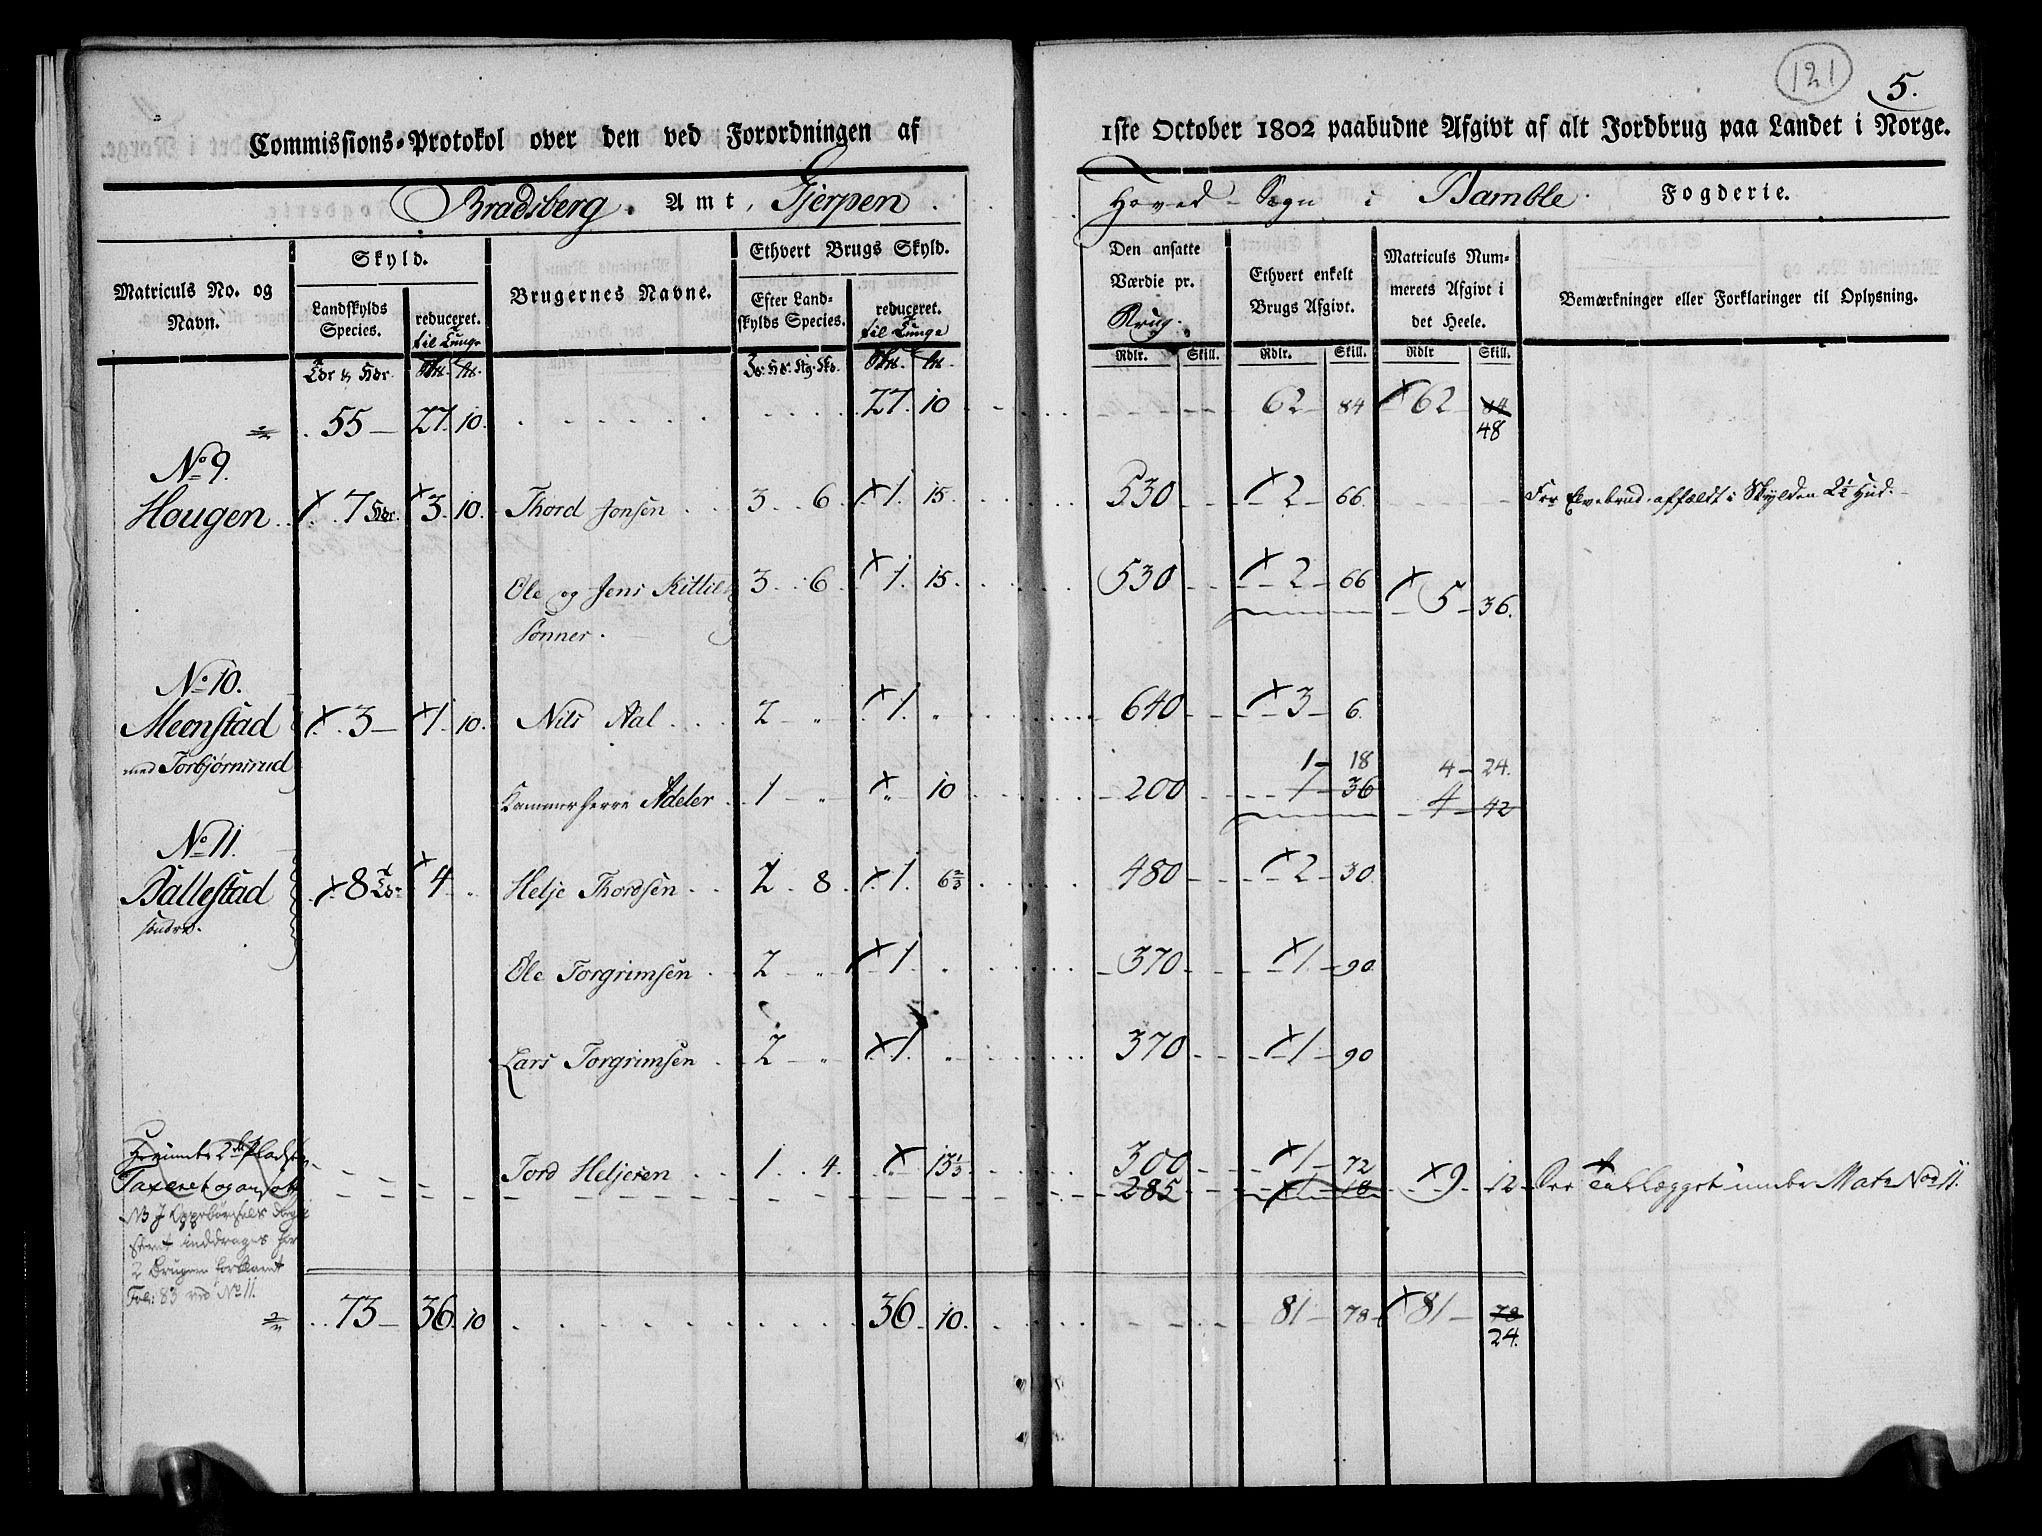 121
5.
Commissions-Protokol over den ved Forordningen af 1ste October 1802 paabudne Afgivt af alt Jordbrug paa Landet i Norge.
Bradsberg Amt, Gjerpen Hoved-Sogn i Bamble Fogderie.
Matriculs No. og Navn.
Skyld.
Landskylds Species.
reduceret. til Tunge
Brugernes Navne.
Ethvert Brugs Skyld.
Efter Landskylds Species.
reduceret. til Tunge
Den ansatte Værdie pr. Brug.
Ethvert enkelt Brugs Afgivt.
Matriculs Nummerets Afgivt i det Heele.
Bemærkninger eller Forklaringer til Oplysning.
Rdlr. Skill. Rdlr. Skill. Rdlr Skill.
55 27. 10. 27. 10 62 84 62 84
48
No 9.
Hougen 7 Hdr. 3. 10. Thord Jonsen 3 6 1. 15. 530 2 66. For Elvebrud affældt i Skylden 2½ Hud.
Ole og Jens Kittil 3 6 1. 15. 530 2 66 5 36.
Sönner.
No 10.
Meenstad 3 1. 10. Nils Aal 2 " 1. " 640 3 6.
med Torbjörnsrud
1 18 4 24.
Kammerherre Adeler 1 " " 10 200 1 36 4 42
No 11.
Ballestad 8 4 " Helje Thordsen 2 8 1. 6⅔ 480 2 30.
söndre.
Ole Torgrimsen 2 " 1 " 370 1 90.
Lars Torgrimsen 2 " 1 " 370 1 90
Herunder 2de Pladser Tord Heljesen 1 4. " 13⅓ 300 1 72 9 12
Taxeret og ansat 285 1 18
under Matr No 11.
inddrages her
2 Brugere forklaret
Fol: 83 ved No 11.
73 36. 10 36 10. 81 78 81 78
24.